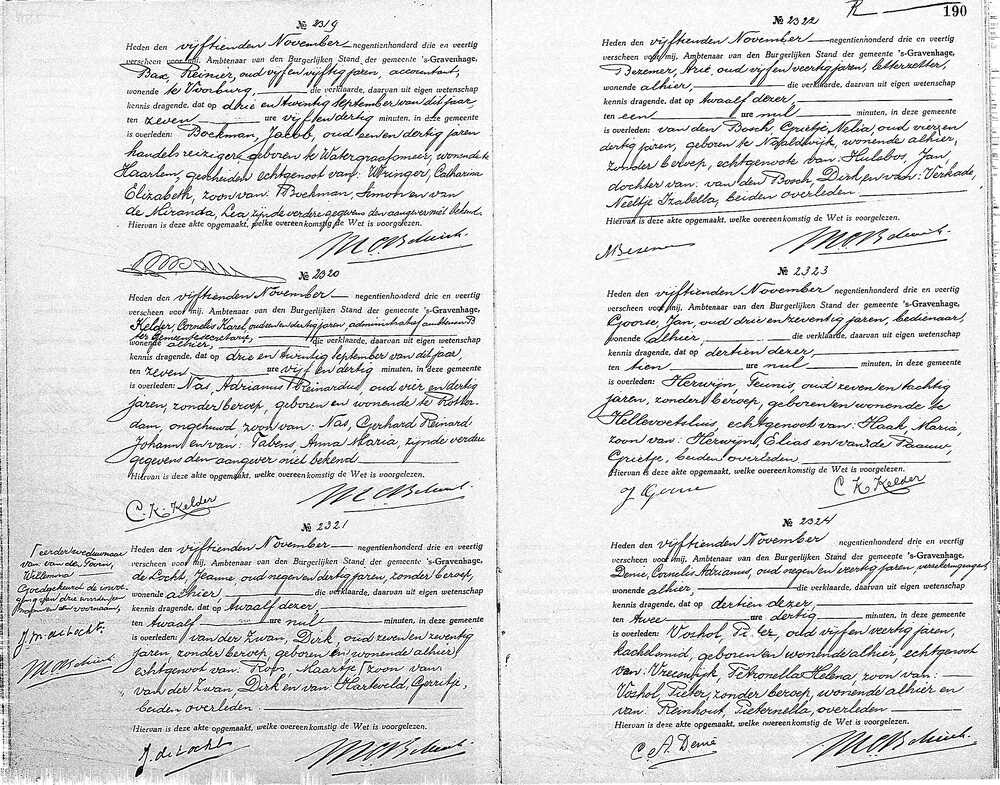 № 2319
Heden den vijftienden November negentienhonderd drie en veertig
verscheen voor mij, Ambtenaar van den Burgerlijken Stand der gemeente 's-Gravenhage,
Bax, Reinier, oud vijf en vijftig jaren, accountant,
wonende te Voorburg, die verklaarde, daarvan uit eigen wetenschap
kennis dragende, dat op drie en twintig September van dit jaar,
ten zeven ure vijf en dertig minuten, in deze gemeente
is overleden: Boekman, Jacob, oud een en dertig jaren
handelsreiziger, geboren te Watergraafsmeer, wonende te
Haarlem, gescheiden echtgenoot van: Catharina
Elizabeth, zoon van: Boekman, Simon en van
de Miranda, Lea, zijnde verdere gegevens den aangever niet bekend.
Hiervan is deze akte opgemaakt, welke overeenkomstig de Wet is voorgelezen.
№ 2320
Heden den vijftienden November negentienhonderd drie en veertig
verscheen voor mij, Ambtenaar van den Burgerlijken Stand der gemeente 's-Gravenhage,
Kelder, Cornelis Karel, oud een en dertig jaren, administratief ambtenaar B
ter gemeentesecretarie,
wonende alhier, die verklaarde, daarvan uit eigen wetenschap
kennis dragende, dat op drie en twintig September van dit jaar,
ten zeven ure vijf en dertig minuten, in deze gemeente
is overleden: Nas, Adrianus Reinardus, oud vier en dertig
jaren, zonder beroep, geboren en wonende te Rotter-
dam, ongehuwd zoon van: Nas, Gerhard Reinard
Johann en van: Tabens, Anna Maria, zijnde verdere
gegevens den aangever niet bekend
Hiervan is deze akte opgemaakt, welke overeenkomstig de Wet is voorgelezen.
C. K. Kelder
№ 2321
Heden den vijftienden November negentienhonderd drie en veertig
verscheen voor mij, Ambtenaar van den Burgerlijken Stand der gemeente 's-Gravenhage,
de Locht, Jeanne, oud negen en dertig jaren, zonder beroep,
wonende alhier, die verklaarde, daarvan uit eigen wetenschap
kennis dragende, dat op twaalf dezer,
ten twaalf ure nul minuten, in deze gemeente
is overleden: van der Zwan, Dirk, oud zeven en zeventig
jaren, zonder beroep, geboren en wonende alhier,
echtgenoot van: Roos, Maartje, zoon van:
van der Zwan, Dirk en van: Harteveld, Gerritje,
beiden overleden.
Hiervan is deze akte opgemaakt, welke overeenkomstig de Wet is voorgelezen.
J. de Locht
eerder weduwnaar
van van der
Goedgekeurd de invoe-
ging van drie woorden,
J. M. de Locht.
190
№ 2322
Heden den vijftienden November negentienhonderd drie en veertig
verscheen voor mij, Ambtenaar van den Burgerlijken Stand der gemeente 's-Gravenhage,
Bezemer, Arie, oud vijf en veertig jaren, letterzetter,
wonende alhier, die verklaarde, daarvan uit eigen wetenschap
kennis dragende, dat op twaalf dezer,
ten een ure nul minuten, in deze gemeente
is overleden: van den Bosch, Grietje, Nelia, oud vier en
dertig jaren, geboren te Naaldwijk, wonende alhier,
zonder beroep, echtgenoote van: Hulsbos, Jan,
dochter van: van den Bosch, Dirk en van: Verkade,
Neeltje Izabella, beiden overleden
Hiervan is deze akte opgemaakt, welke overeenkomstig de Wet is voorgelezen.
№ 2323
Heden den vijftienden November negentienhonderd drie en veertig
verscheen voor mij, Ambtenaar van den Burgerlijken Stand der gemeente 's-Gravenhage,
Goorse, Jan, oud drie en zeventig jaren, bedienaar,
wonende alhier, die verklaarde, daarvan uit eigen wetenschap
kennis dragende, dat op dertien dezer,
ten tien ure nul minuten, in deze gemeente
is overleden: Herwijn, Teunis, oud zeven en tachtig
jaren, zonder beroep, geboren en wonende te
Hellevoetsluis, echtgenoot van: Haak, Maria,
zoon van: Herwijn, Elias en van: de Paauw,
Grietje, beiden overleden
Hiervan is deze akte opgemaakt, welke overeenkomstig de Wet is voorgelezen.
J Goorse
C K Kelder
№ 2324
Heden den vijftienden November negentienhonderd drie en veertig
verscheen voor mij, Ambtenaar van den Burgerlijken Stand der gemeente 's-Gravenhage,
Demie, Cornelis Adrianus, oud negen en veertig jaren, verzekeringsagent,
wonende alhier, die verklaarde, daarvan uit eigen wetenschap
kennis dragende, dat op dertien dezer,
ten twee ure dertig minuten, in deze gemeente
is overleden: Voshol, Pieter, oud vijf en veertig jaren,
kachelsmid, geboren en wonende alhier, echtgenoot
van: Vreeswijk, Petronella Helena, zoon van:
Voshol, Pieter, zonder beroep, wonende alhier en
van: Remhout, Pieternella, overleden
Hiervan is deze akte opgemaakt, welke overeenkomstig de Wet is voorgelezen.
C. A. Demie